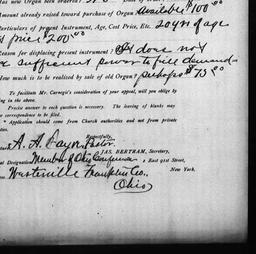 Amount already raised toward purchase of Organ? Available $100.00
Particulars of present Instrument, Age, Cost Price, Etc. 20 yrs of age
price $200.00
Reason for displacing present instrument? It does not
sufficient power to fill demands
How much is to be realised by sale of old Organ? Perhaps $75.00
To facilitate Mr. Carnegie's consideration of your appeal, will you oblige by
ing in the above.
Precise answer to each question is necessary. The leaving of blanks may
correspondence to be filed.
* Application should come from Church authorities and not from private
ties.
Respectfully,
A. A. Pastor.
JAS. BERTRAM, Secretary,
Designation Member of Ohio Conference 2 East 91st Street,
New York.
Westerville Franklin Co.,
Ohio